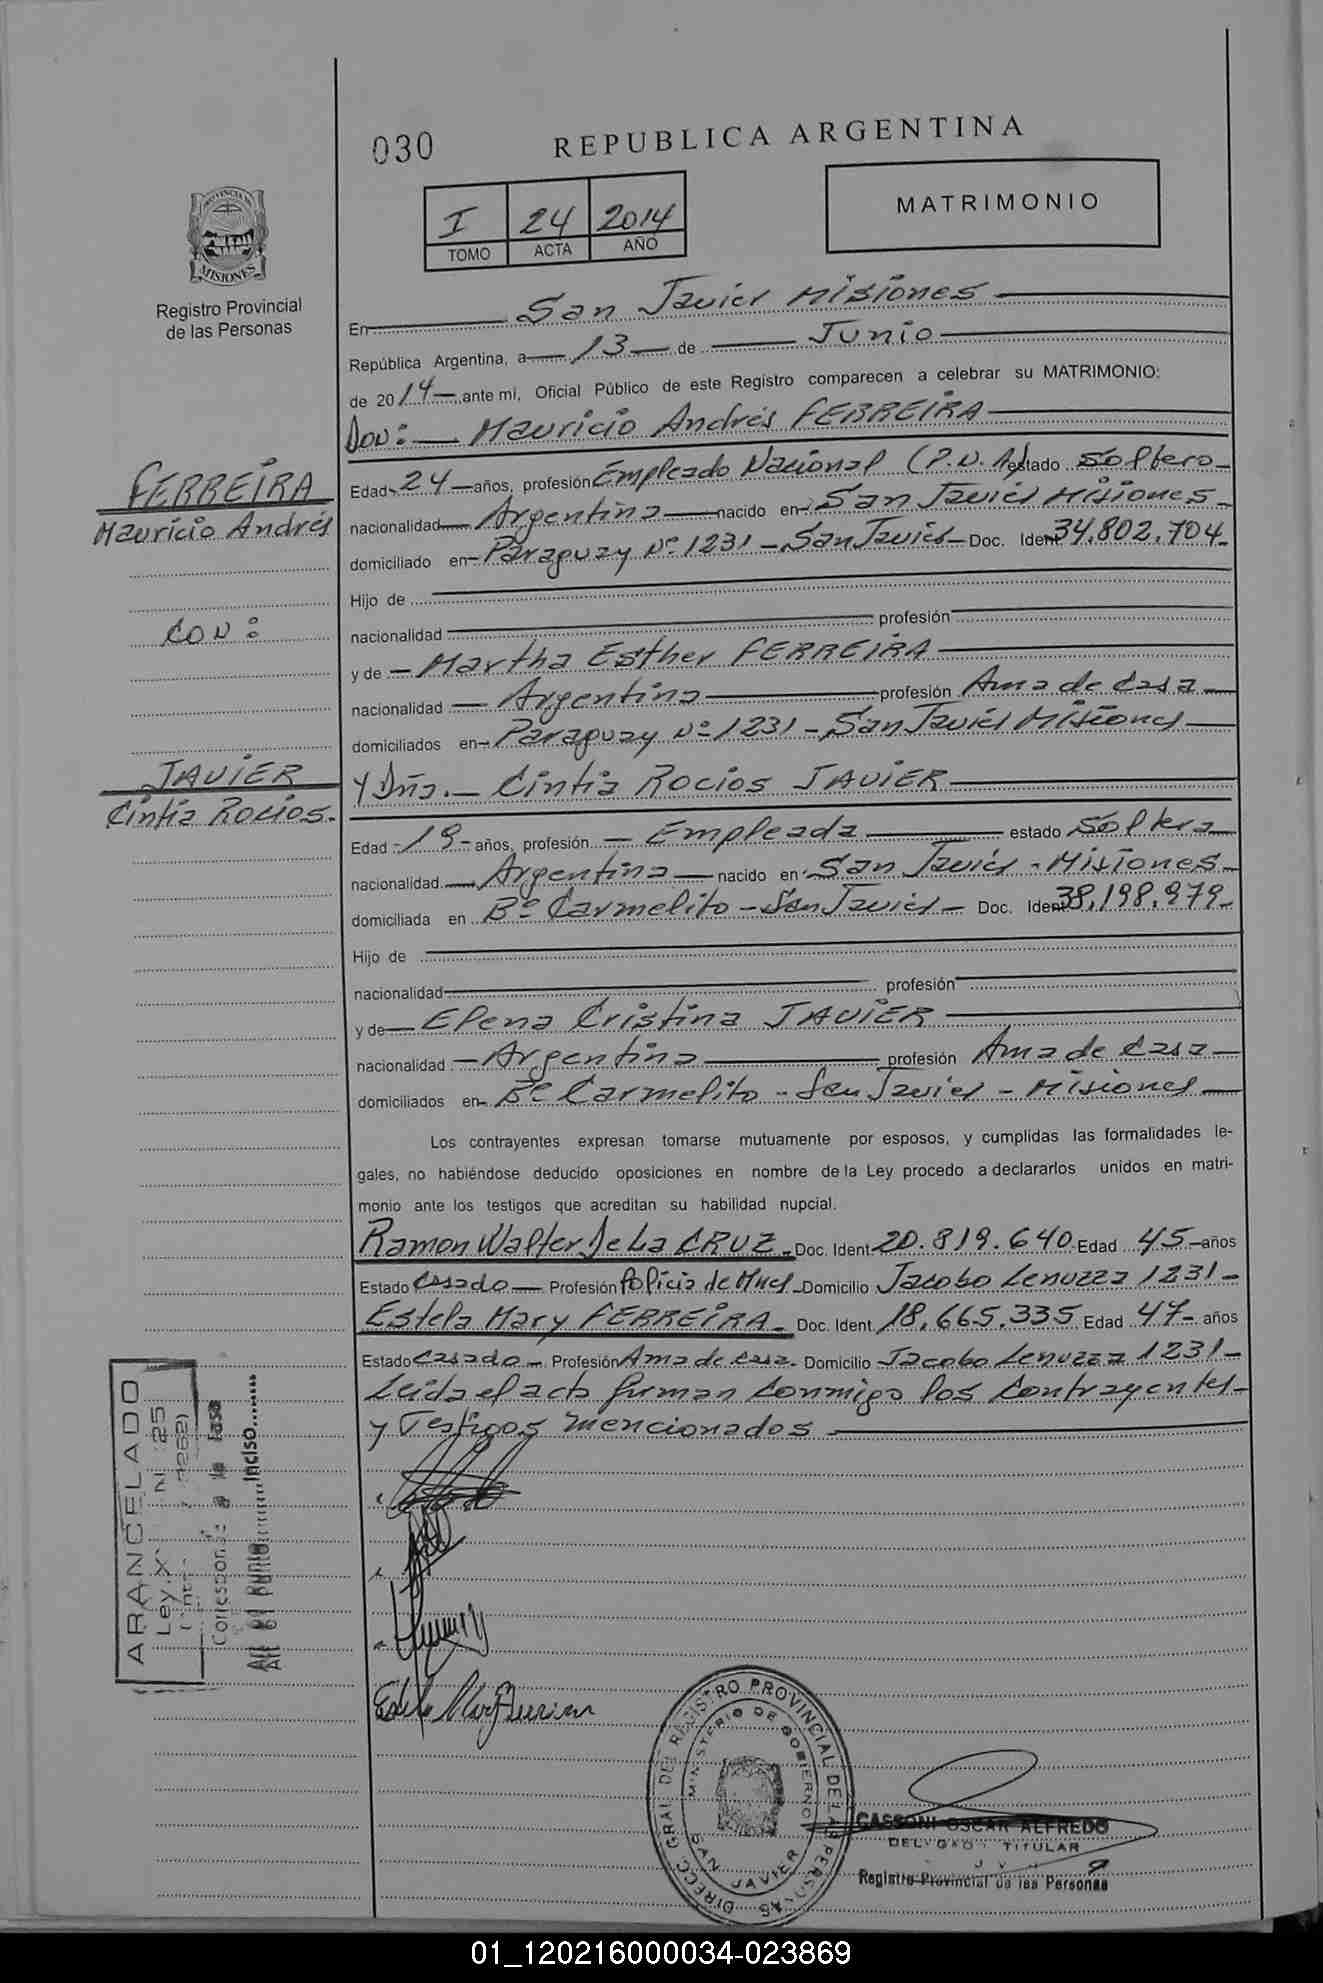 030
REPUBLICA ARGENTINA
I 24 2014
TOMO ACTA AÑO
MATRIMONIO
PROVINCIA DE
MISIONES
Registro Provincial
de las Personas
En San Javier Misiones
República Argentina, a 13 de Junio
de 2014 ante mi, Oficial Público de este Registro comparecen a celebrar su MATRIMONIO:
Don: Mauricio Andrés FERREIRA
FERREIRA
Mauricio Andrés
CON:
JAVIER
Cintia Rocios.
Edad 24 años, profesión Empleado Nacional (P.N.A) estado Soltero
nacionalidad Argentina nacido en San Javier Misiones
domiciliado en Paraguay Nº 1231 - San Javier - Doc. Ident 34,802,704
Hijo de
nacionalidad profesión
y de Martha Esther FERREIRA
nacionalidad Argentina profesión Ama de Casa
domiciliados en Paraguay Nº 1231 - San Javier Misiones
Y Dña. Cintia Rocios JAVIER
Edad 19 años, profesión Empleada estado Soltera
nacionalidad Argentina nacido en San Javier - Misiones
domiciliada en Bº Carmelito - San Javier - Doc. Ident 38,198,979
Hijo de
nacionalidad profesión
y de Elena Cristina JAVIER
nacionalidad Argentina profesión Ama de Casa
domiciliados en Bº Carmelito - San Javier - Misiones
Los contrayentes expresan tomarse mutuamente por esposos, y cumplidas las formalidades le-
gales, no habiéndose deducido oposiciones en nombre de la Ley procedo a declararlos unidos en matri-
monio ante los testigos que acreditan su habilidad nupcial.
Ramon Walter De La CRUZ Doc. Ident 20.819.640 Edad 45 años
Estado Casado Profesión Policia de Mnes Domicilio Jacobo Lenuzza 1231
Estela Mary FERREIRA Doc. Ident 18,665,335 Edad 47 años
Estado Casado Profesión Ama de casa Domicilio Jacobo Lenuzza 1231
Leida el acta firman conmigo los contrayentes
y Testigos mencionados
ARANCELADO
Ley X N 25
Corresponde a la Tasa
Art 81 Punto Inciso
DIRECC. GRAL DEL REGISTRO PROVINCIAL DE LAS PERSONAS
MINISTERIO DE GOBIERNO
SAN JAVIER
CASSONI OSCAR ALFREDO
DELEGADO TITULAR
Registro Provincial de las Personas
01_120216000034-023869